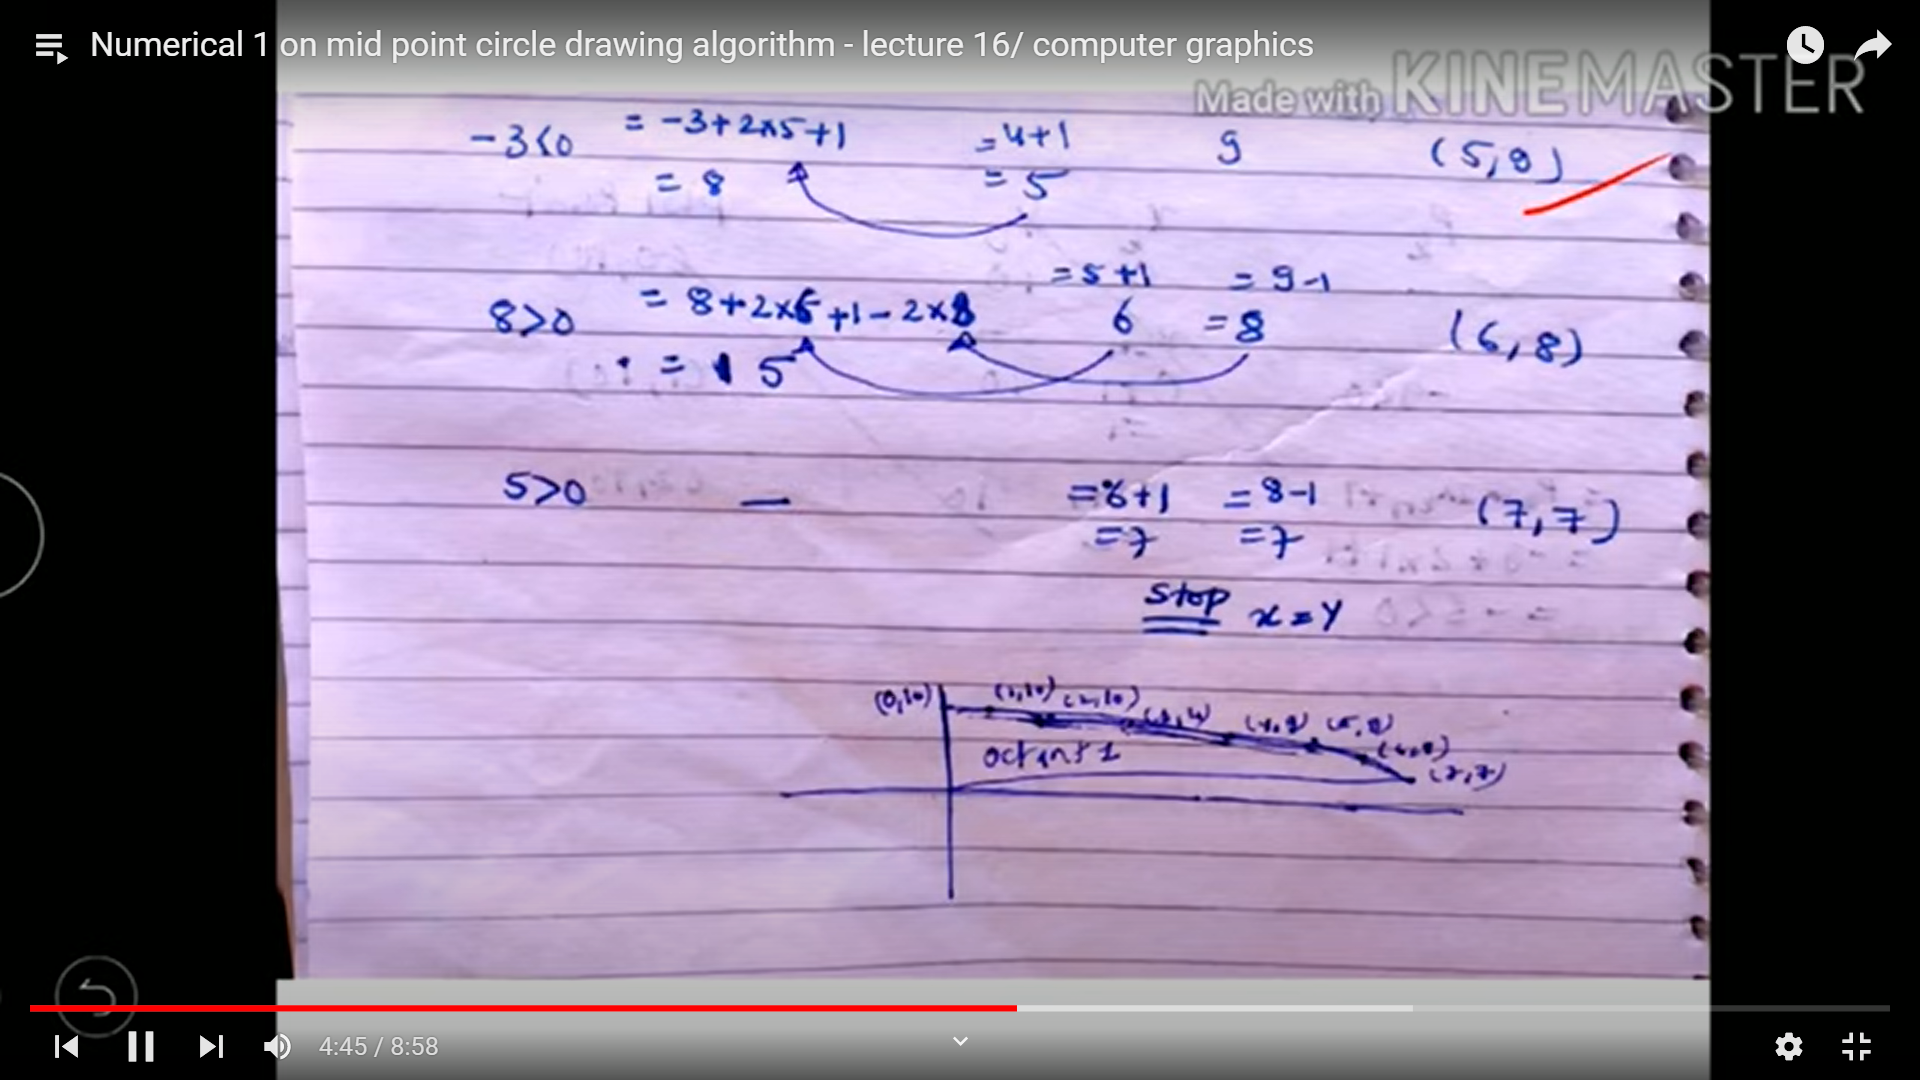 Numerical 1 on mid point circle drawing algorithm - lecture 16/ computer graphics
Made with KINEMASTER
-3<0 = -3+2×5+1 =4+1 9 (5,9)
= 8 = 5
=5+1 = 9-1
8>0 = 8+2×6+1-2×8 6 =8 (6,8)
= 5
5>0 — =6+1 =8-1 (7,7)
=7 =7
Stop x=y
(0,10) (1,10) (2,10) (5,9) (6,8)
octant 1 (7,7)
4:45 / 8:58